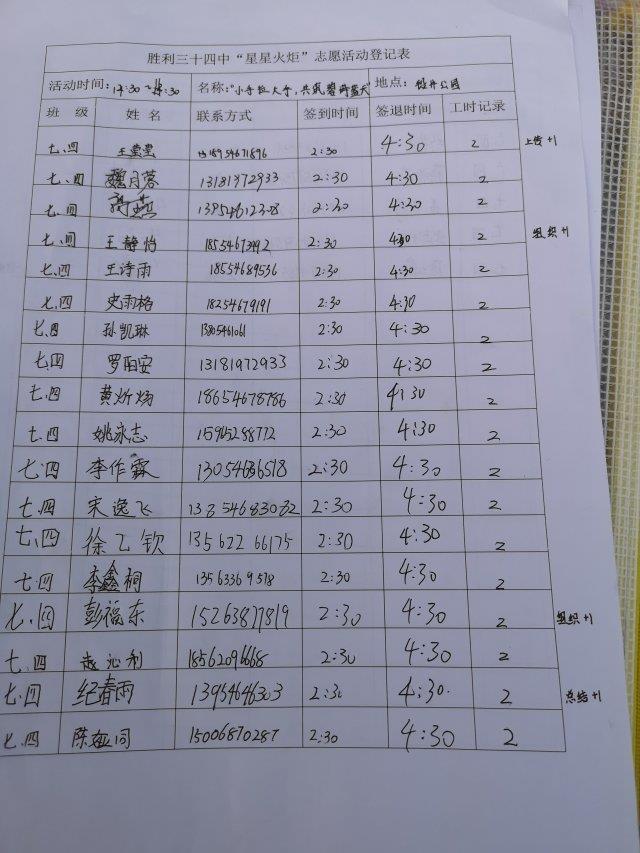 胜利三十四中“星星火炬”志愿活动登记表
活动时间: 名称:“小手拉大手,共筑碧海蓝天” 地点: 公园
班 级 姓 名 联系方式 签到时间 签退时间 工时记录
七.四 2:30 4:30 2 上传+1
七.四 魏月蓉 13181972933 2:30 4:30 2
七.四 2:30 4:30 2
七.四 王静怡 2:30 4:30 2 组织+1
七.四 王诗雨 18554689536 2:30 4:30 2
七.四 史雨格 18254679191 2:30 4:30 2
七.四 孙凯琳 2:30 4:30 2
七.四 罗陌安 13181972933 2:30 4:30 2
七.四 黄炘炀 18654678786 2:30 4:30 2
七.四 姚泳志 15905288772 2:30 4:30 2
七.四 李作霖 2:30 4:30 2
七.四 宋逸飞 13854683082 2:30 4:30 2
七.四 徐乙钦 13562266175 2:30 4:30 2
七.四 李鑫桐 13563369578 2:30 4:30 2
七.四 彭福东 15263877819 2:30 4:30 2 组织+1
七.四 赵沁利 18562096668 2:30 4:30 2
七.四 纪春雨 13954646303 2:30 4:30 2 总结+1
七.四 陈娅同 15006870287 2:30 4:30 2